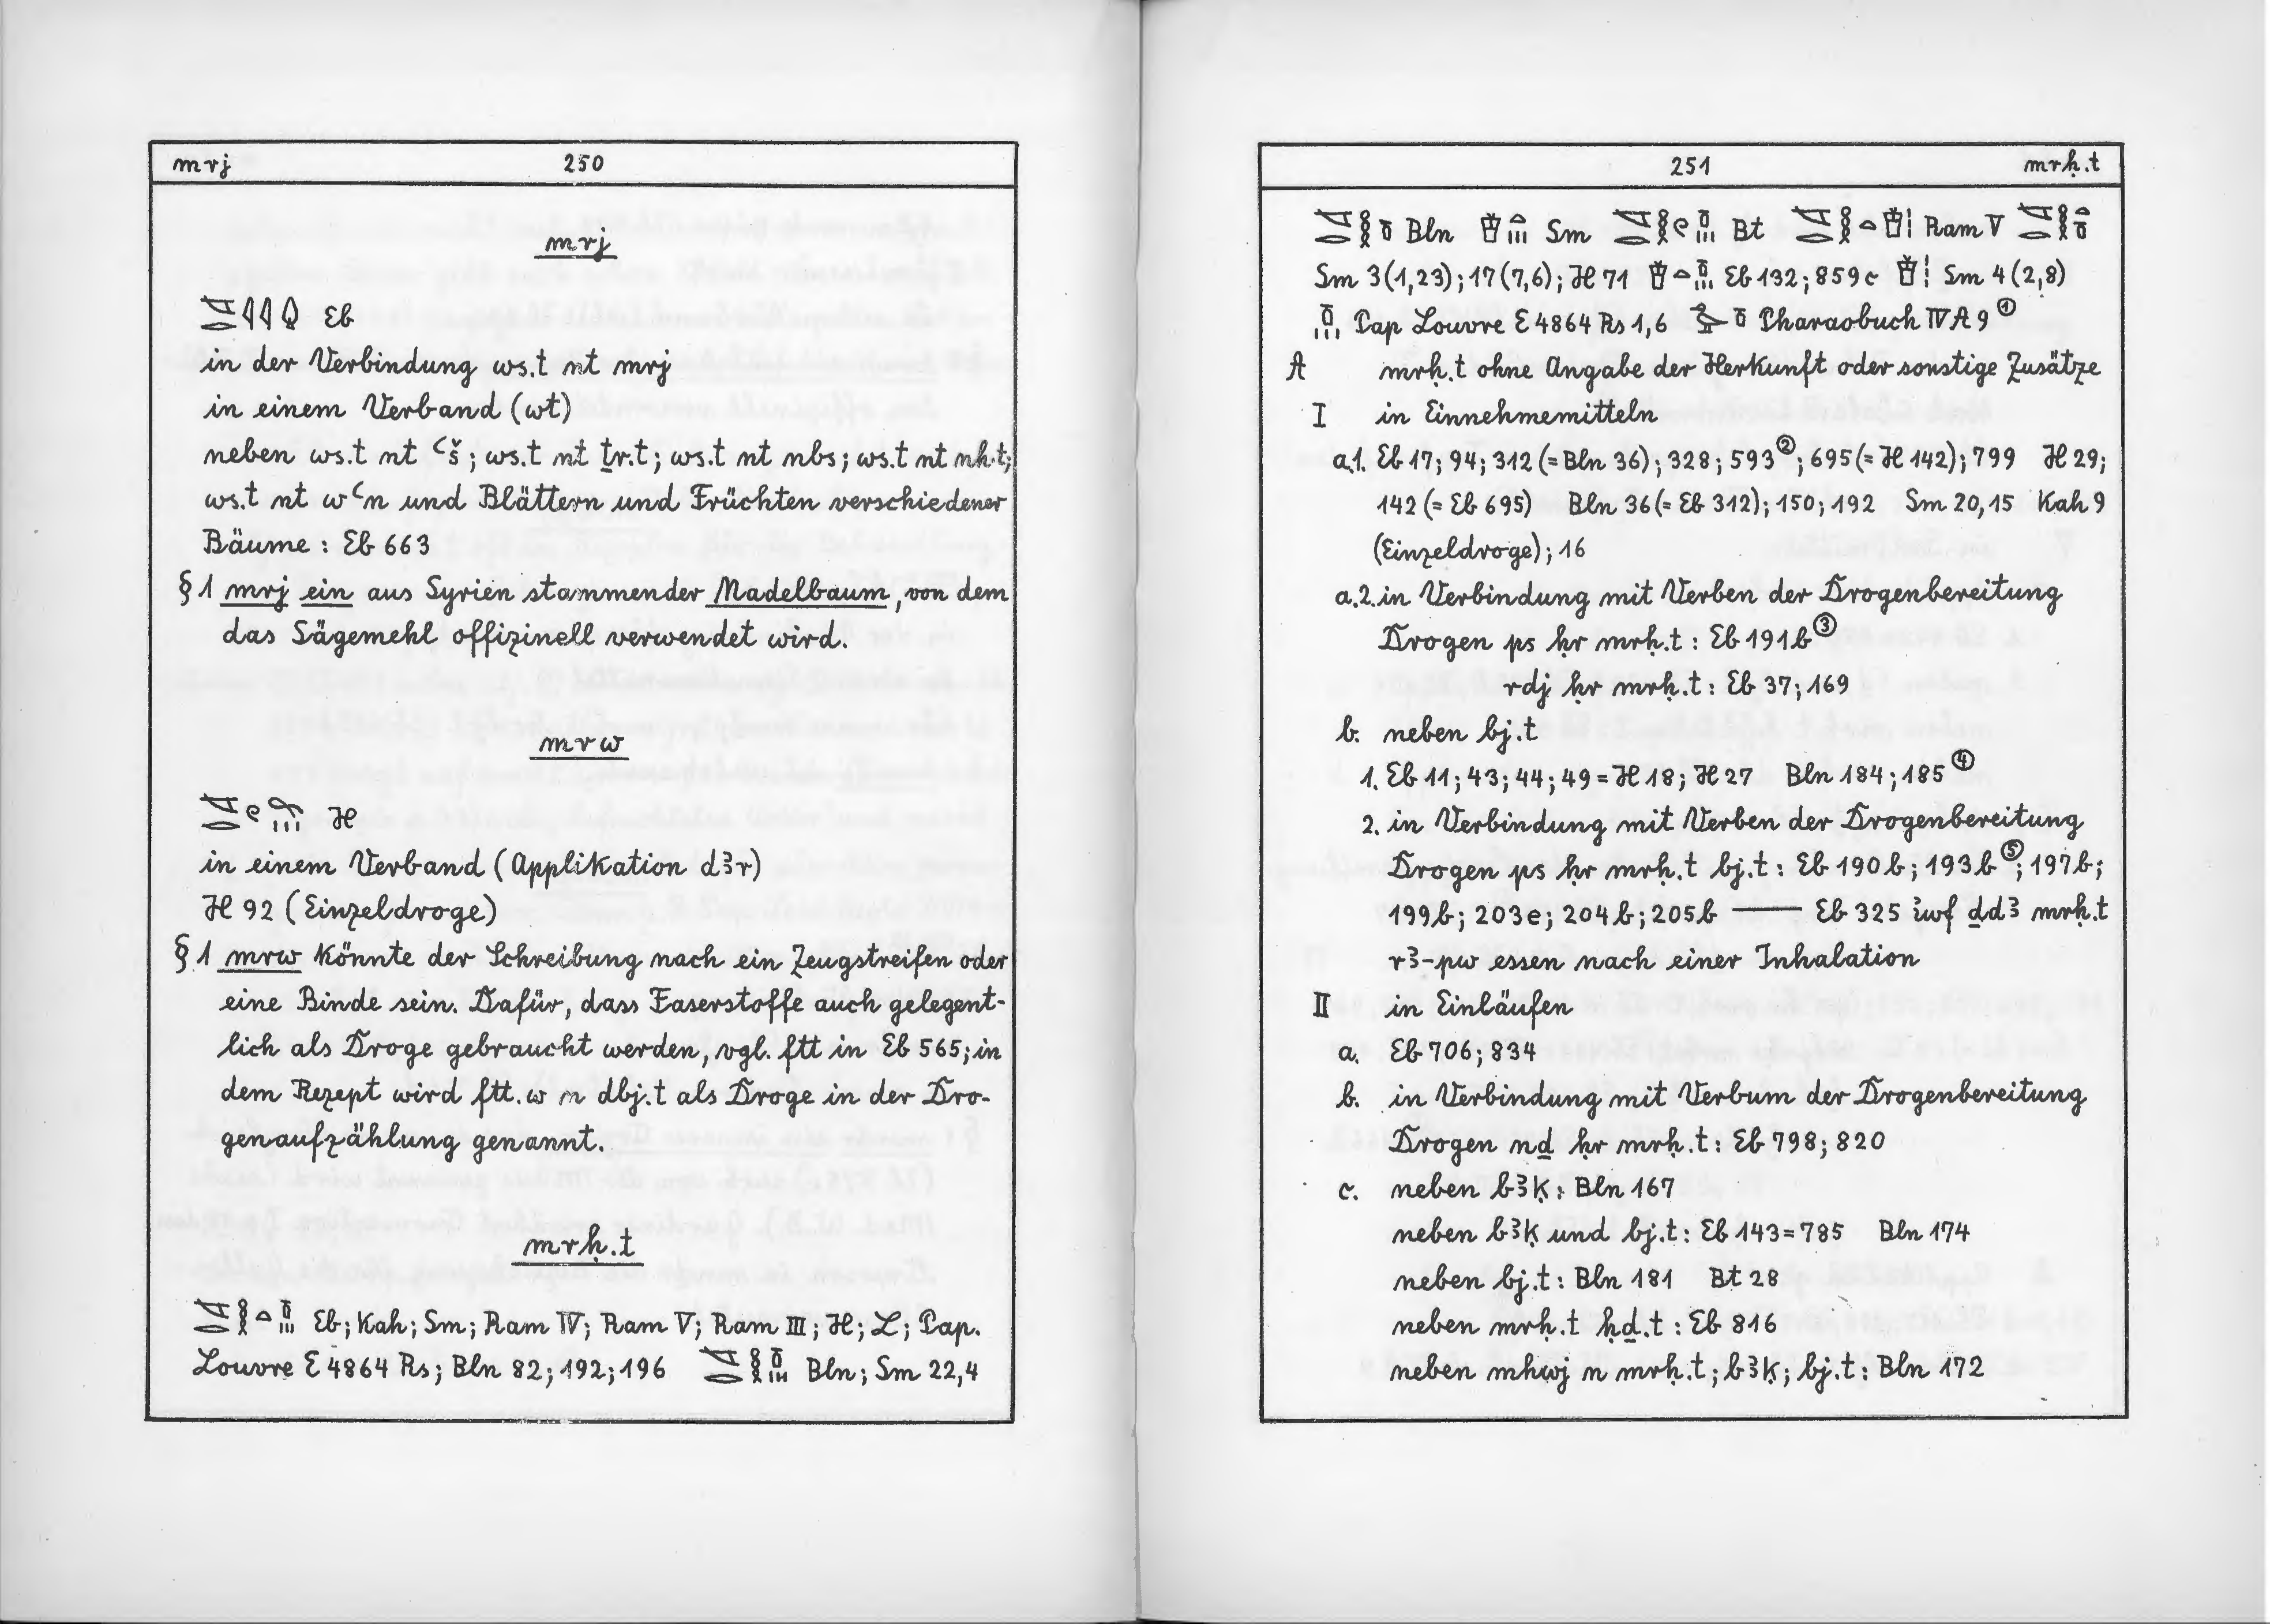 mrj 250
mrj
𓌻𓂋𓇋𓇋𓆭 Eb
in der Verbindung ws.t nt mrj
in einem Verband (wt)
neben ws.t nt ꜥš; ws.t nt ṯr.t; ws.t nt nbs; ws.t nt nh.t;
ws.t nt wꜥn und Blättern und Früchten verschiedener
Bäume : Eb 663
§1 mrj ein aus Syrien stammender Nadelbaum, von dem
das Sägemehl offizinell verwendet wird.
mrw
H
in einem Verband (Applikation dꜣr)
H 92 (Einzeldroge)
§1 mrw könnte der Schreibung nach ein Zeugstreifen oder
eine Binde sein. Dafür, dass Faserstoffe auch gelegent-
lich als Droge gebraucht werden, vgl. ftt in Eb 565; in
dem Rezept wird ftt.w n dbj.t als Droge in der Dro-
genaufzählung genannt.
mrḥ.t
Eb; Kah; Sm; Ram IV; Ram V; Ram III; H; L; Pap.
Louvre E 4864 Rs; Bln 82; 192; 196 Bln; Sm 22,4
251 mrḥ.t
Bln Sm Bt Ram V
Sm 3(1,23); 17(7,6); H 71 Eb 132; 859c Sm 4(2,8)
Pap Louvre E 4864 Rs 1,6 Pharaobuch IV A 9 ①
A mrḥ.t ohne Angabe der Herkunft oder sonstige Zusätze
I in Einnehmemitteln
a.1. Eb 17; 94; 312 (=Bln 36); 328; 593②; 695 (=H 142); 799 H 29;
142 (=Eb 695) Bln 36 (=Eb 312); 150; 192 Sm 20,15 Kah 9
(Einzeldroge); 16
a.2. in Verbindung mit Verben der Drogenbereitung
Drogen ps ḥr mrḥ.t : Eb 191b③
rdj ḥr mrḥ.t : Eb 37; 169
b. neben bj.t
1. Eb 11; 43; 44; 49 = H 18; H 27 Bln 184; 185④
2. in Verbindung mit Verben der Drogenbereitung
Drogen ps ḥr mrḥ.t bj.t : Eb 190b; 193b⑤; 197b;
199b; 203e; 204b; 205b —— Eb 325 i҆wf ḏdꜣ mrḥ.t
rꜣ-pw essen nach einer Inhalation
II in Einläufen
a. Eb 706; 834
b. in Verbindung mit Verbum der Drogenbereitung
Drogen nḏ ḥr mrḥ.t : Eb 798; 820
c. neben bꜣḳ : Bln 167
neben bꜣḳ und bj.t : Eb 143 = 785 Bln 174
neben bj.t : Bln 181 Bt 28
neben mrḥ.t ḥḏ.t : Eb 816
neben mhwj n mrḥ.t; bꜣḳ; bj.t : Bln 172